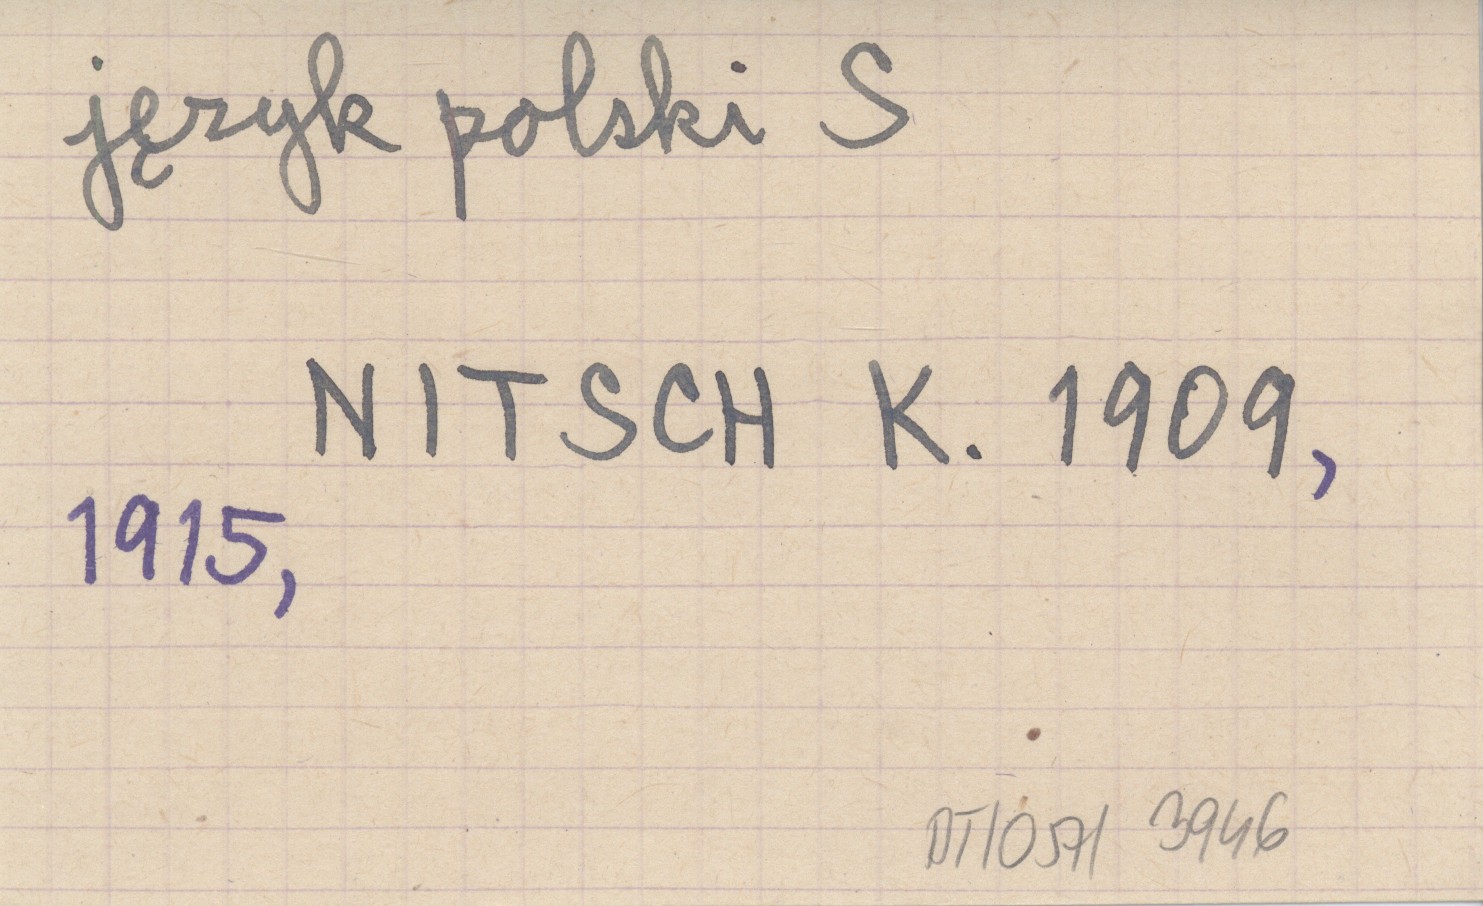 język polski S
NITSCH K. 1909,
1915,
DT/057/ 3946